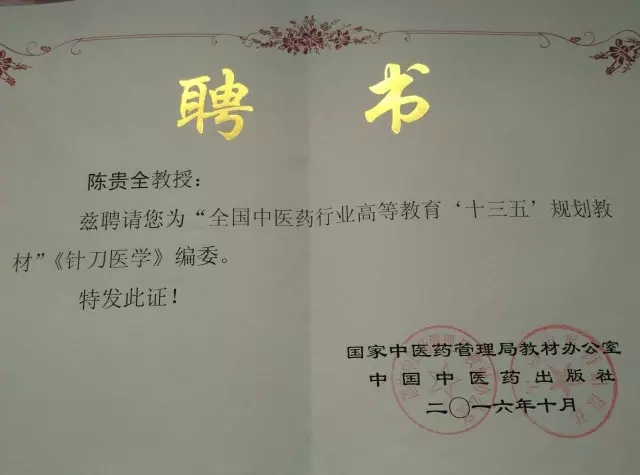 聘 书
陈贵全教授：
兹聘请您为“全国中医药行业高等教育‘十三五’规划教
材”《针刀医学》编委。
特发此证！
国家中医药管理局教材办公室
中国中医药出版社
二〇一六年十月